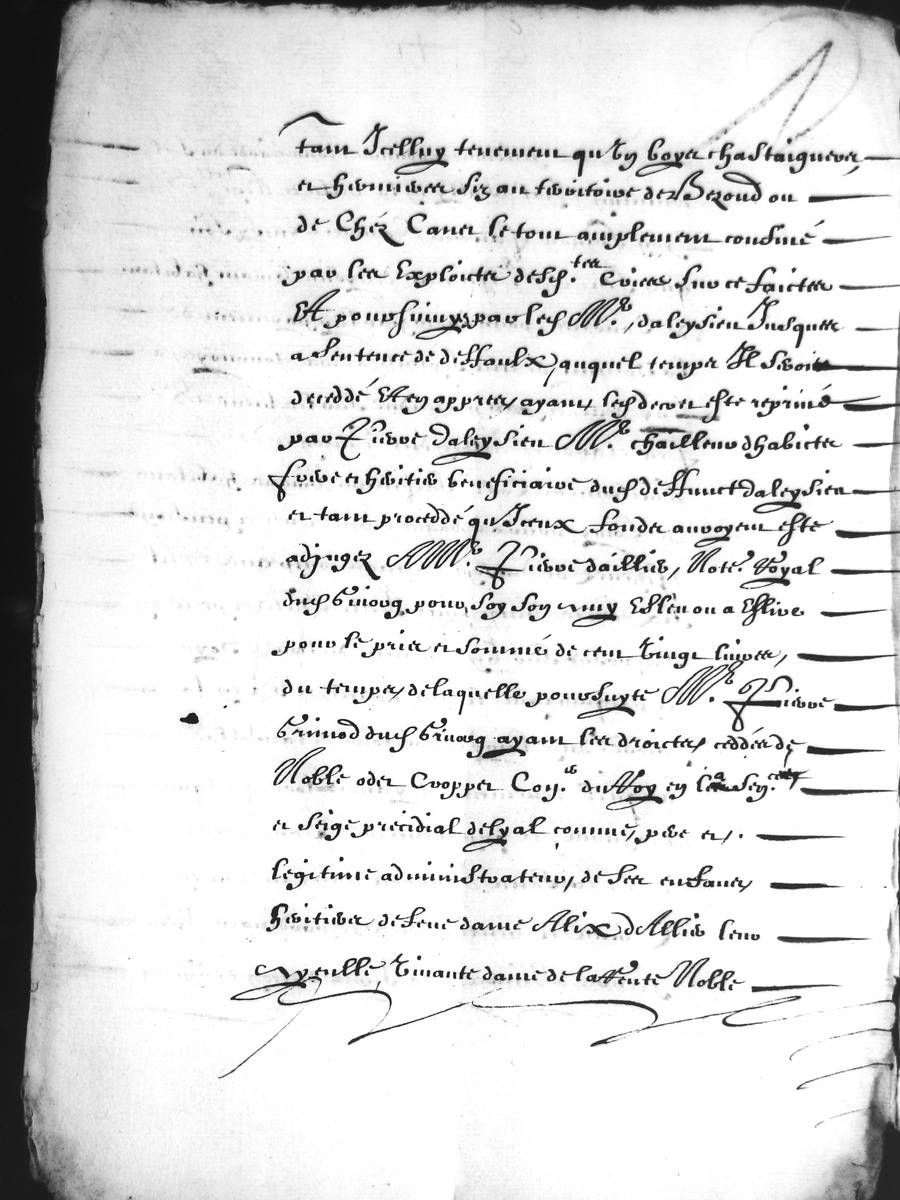 tant Icelluy tenement qu'un boyer chastaigneres
et hermiures siz au territoire de Bezond ou
de Chéz Canet le tout amplement confiné
par les Exploictz desd.tes Criees sur ce faictes
Et poursuivyes par led Mr. daleysien Jusques
a sentence de deffaulx, auquel temps Il seroit
decedé Et en appres, ayant led decret esté reprins
par Pierre daleysien Mr. chailleur dhabictz
frere et heritier beneficiaire dud deffunct daleysien
et tant proceddé qu'Iceux fondz auroyent esté
adjugez A Mr. Pierre daillier, Note. Royal
dud pour soy son amy Esleu ou a Eslire
pour le pris et somme de cent vingt livres,
du temps, de laquelle poursuyte Mr. Pierre
Grimod dud ayant les droictz, ceddés de
Noble odet Cropper Con.er du Roy en la Sen.cee
et seige precidial de Lyal comme, pere et,
legitime administrateur, de ses enfans,
heritiers de feue dame Alix dAllier leur
ayeulle, vivante dame de la Noble